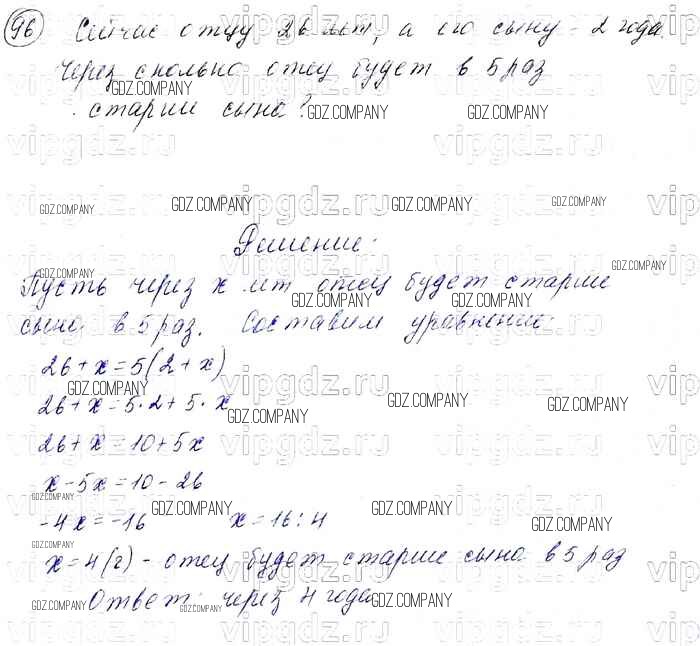 96 Сейчас отцу 26 лет, а его сыну - 2 года.
Через сколько отец будет в 5 раз
старше сына?
Решение:
Пусть через x лет отец будет старше
сына в 5 раз. Составим уравнение:
26 + x = 5(2 + x)
26 + x = 5 · 2 + 5 · x
26 + x = 10 + 5x
x - 5x = 10 - 26
-4x = -16 x = 16 : 4
x = 4 (г) - отец будет старше сына в 5 раз
Ответ: через 4 года